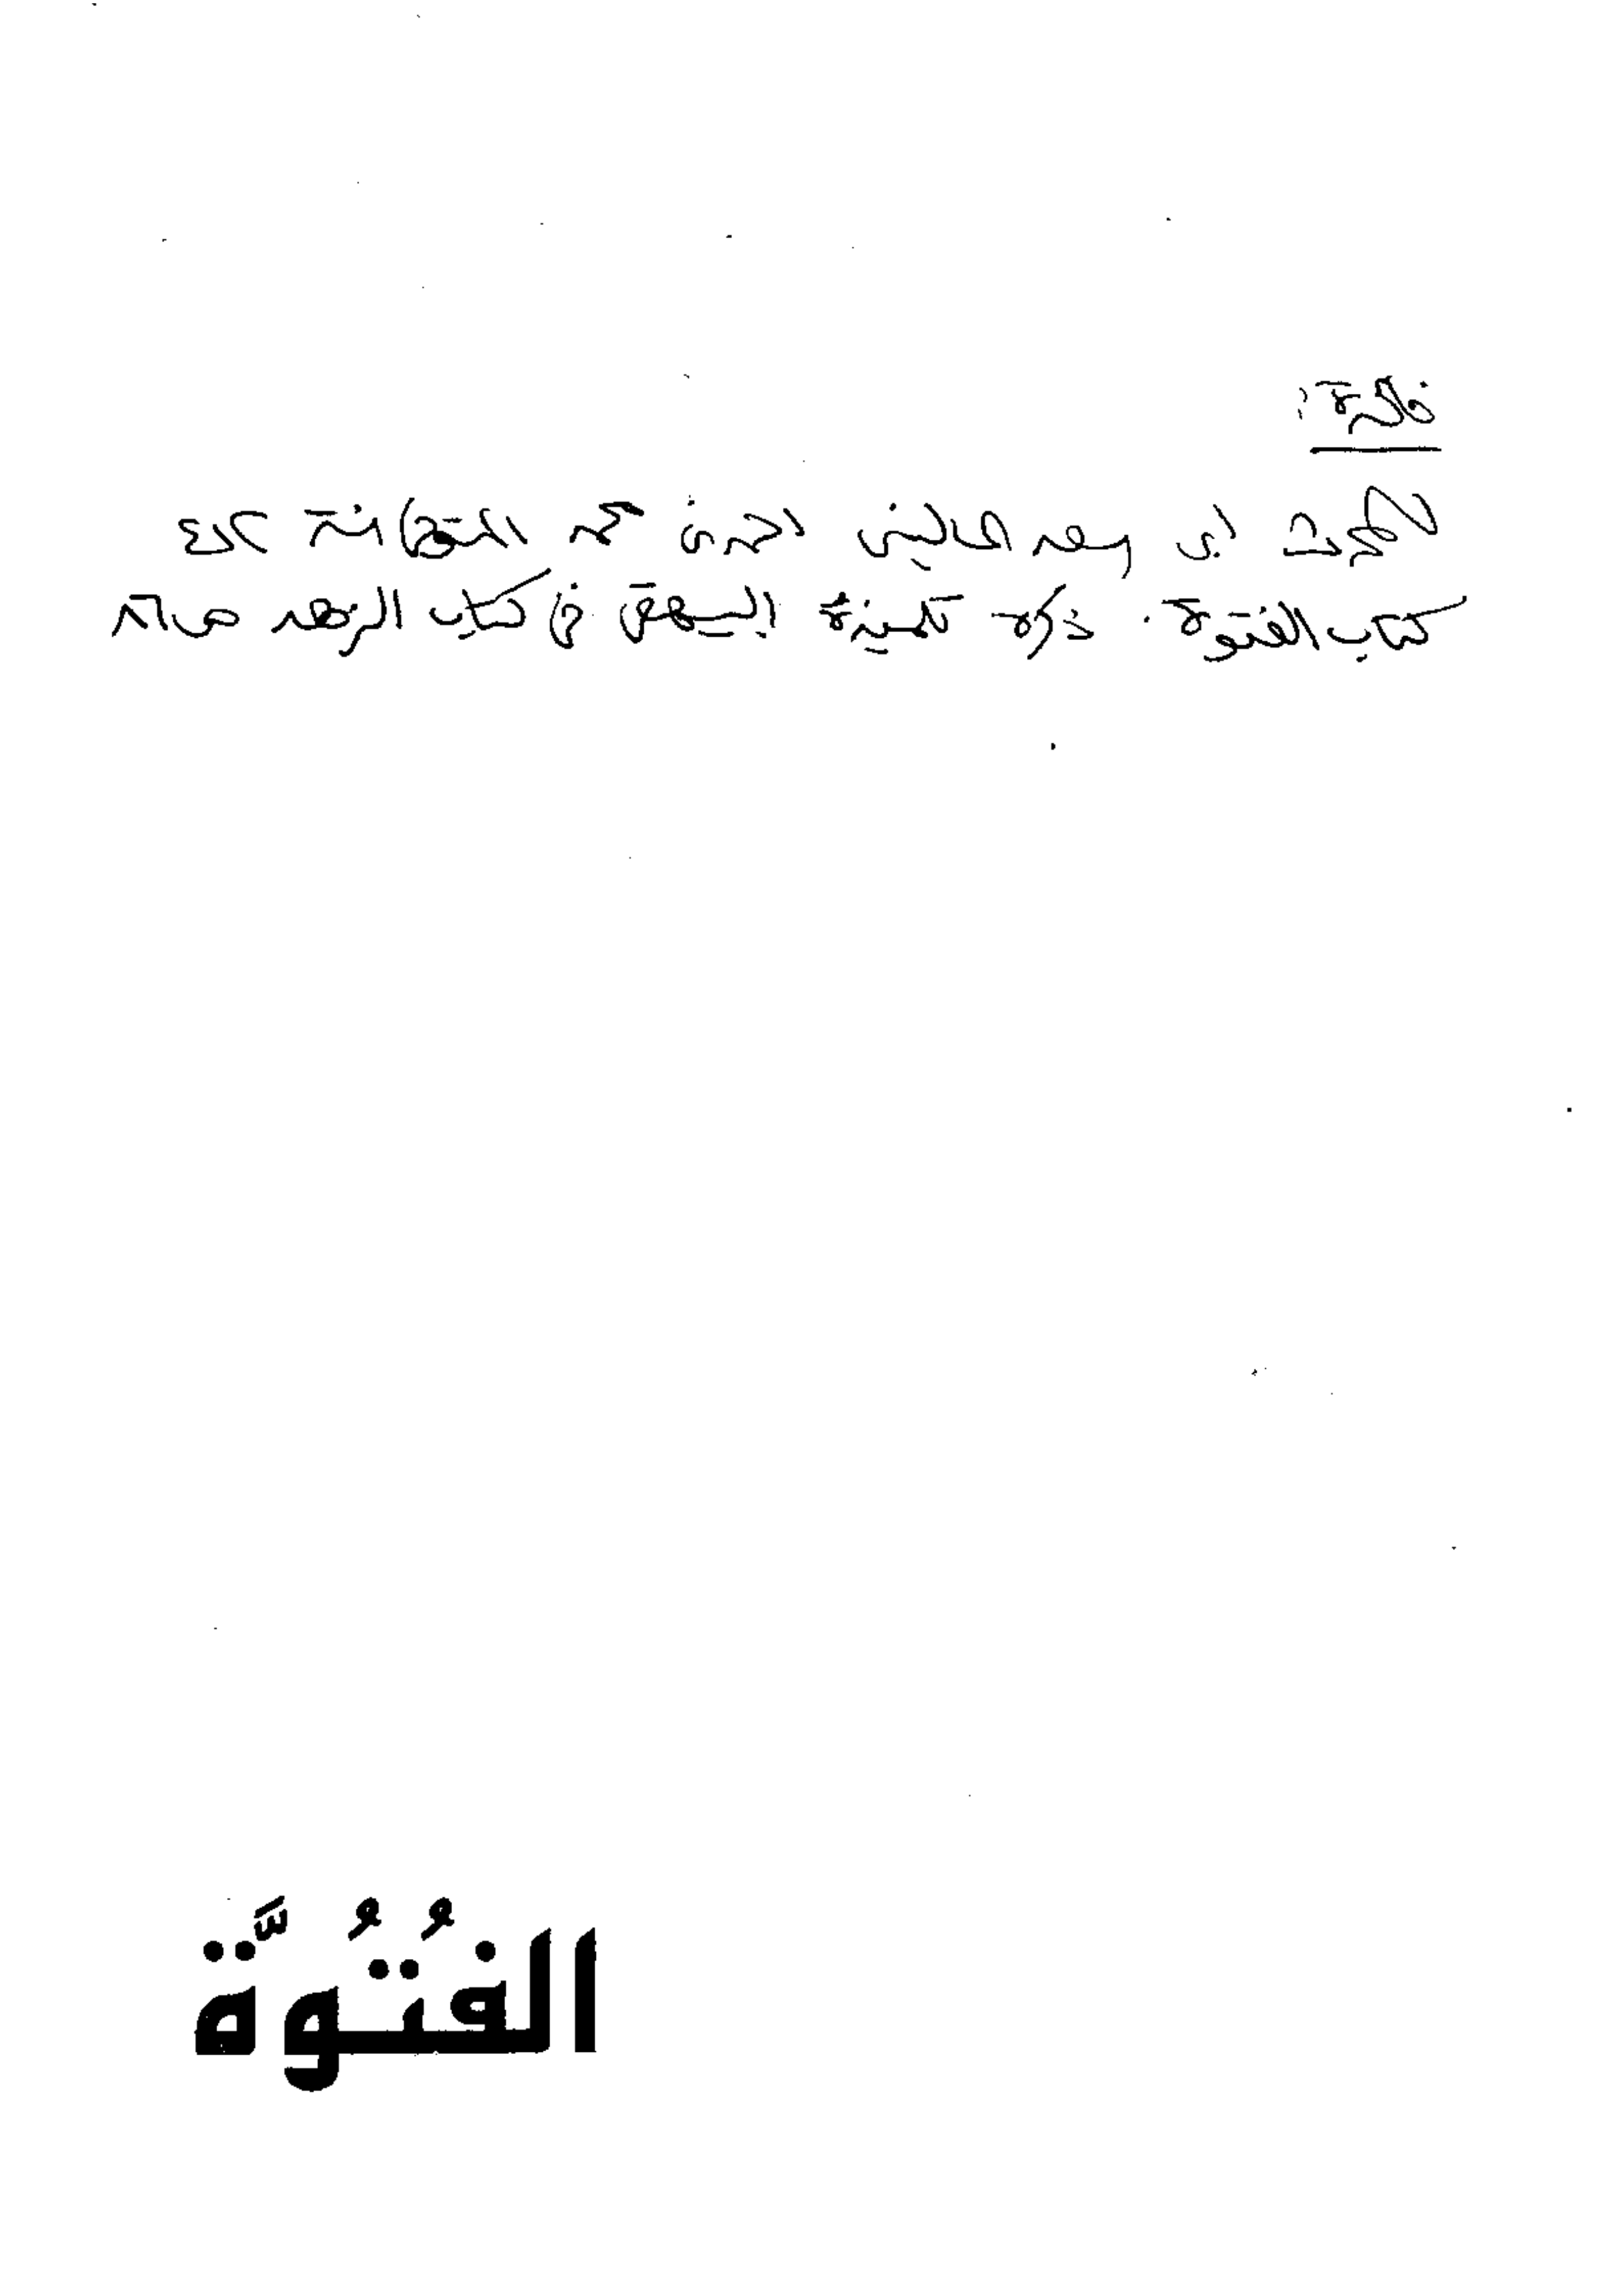 فائدة:
للمحدث أبي سعد الماليني أحمد بن محمد المتوفى سنة
كتاب الفتوة. ذكره تلميذه البيهقي في كتاب الزهد ص
الفُتُوَّة